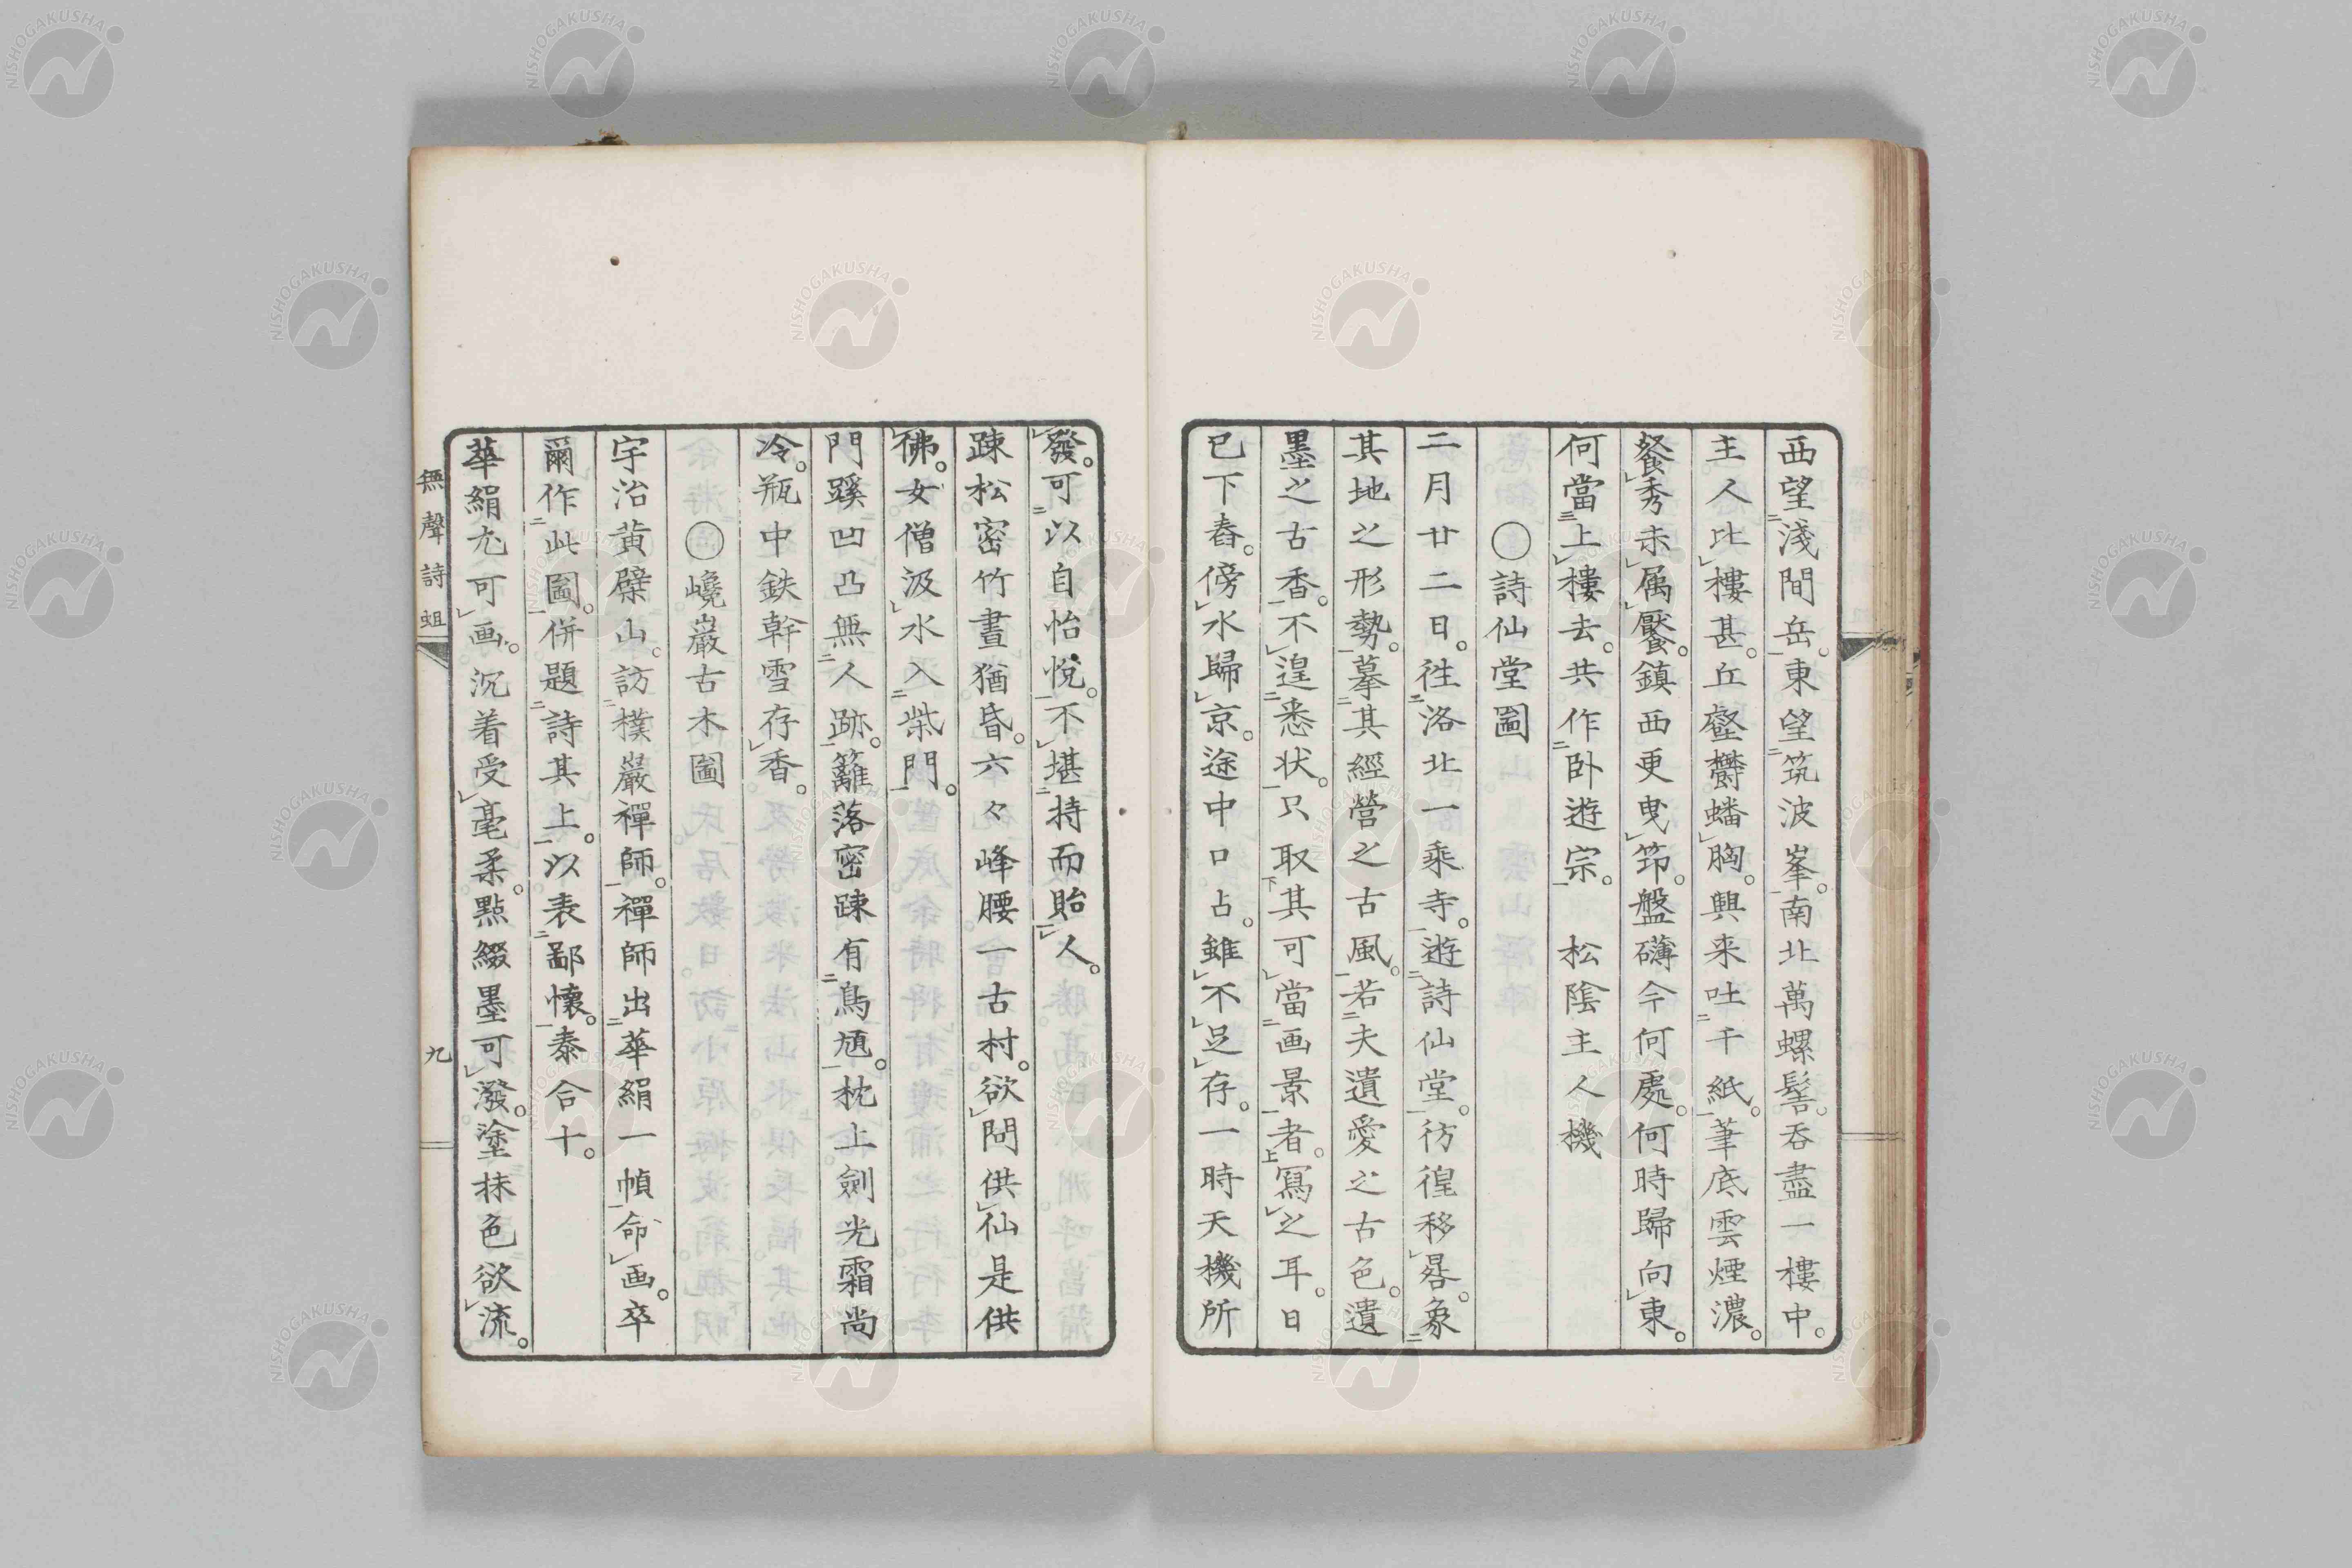 西望淺間岳。東望筑波峯。南北萬螺髻。吞盡一樓中。
主人比樓甚。丘壑欝蟠胸。興来吐千紙。筆底雲煙濃。
餐秀未属饜。鎮西更曳筇。盤礴今何處。何時歸向東。
何當上樓去。共作卧遊宗。 松陰主人機
○詩仙堂圖
二月廿二日。徃洛北一乘寺。遊詩仙堂。彷徨移晷。象
其地之形勢。摹其經營之古風。若夫遺愛之古色。遺
墨之古香。不遑悉状。只取其可當画景者。寫之耳。日
已下舂。傍水歸京。途中口占。雖不足存。一時天機所
發。可以自怡悅。不堪持而貽人。
踈松密竹晝猶昏。六々峰腰一古村。欲問供仙是供
佛。女僧汲水入柴門。
門蹊凹凸無人跡。籬落密踈有鳥𢈘。枕上劍光霜尚
冷。瓶中鉄幹雪存香。
○巉巖古木圖
宇治黄檗山。訪樸巖禪師。禪師出華絹一幀命画。卒
爾作此圖。併題詩其上。以表鄙懷。泰合十。
華絹尤可画。沉着受毫柔。點綴墨可潑。塗抹色欲流。
無聲詩蛆
九
NISHOGAKUSHA